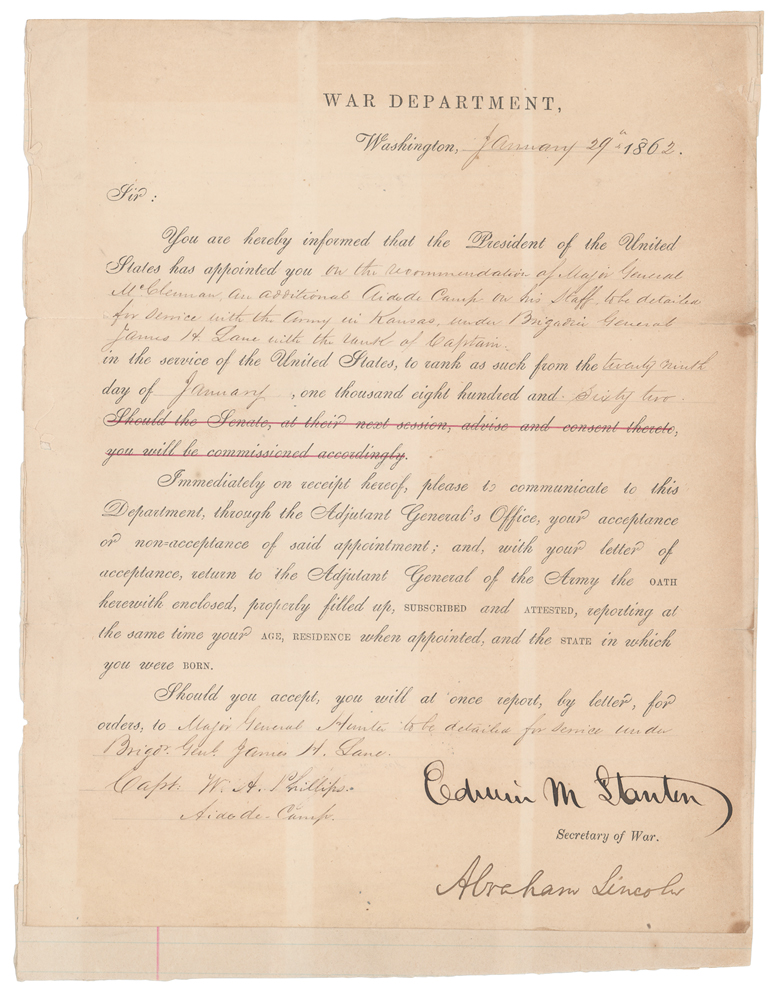 WAR DEPARTMENT,
Washington, January 29th 1862.
Sir:
You are hereby informed that the President of the United
States has appointed you on the recommendation of Major General
McClennan, an additional Aidode Camp on his Staff, to be detailed
for service with the Army in Kansas, under Brigadier General
James H. Lane with the rank of Captain.
in the service of the United States, to rank as such from the twenty ninth
day of January, one thousand eight hundred and Sixty two.
Should the Senate, at their next session, advise and consent thereto,
you will be commissioned accordingly.
Immediately on receipt hereof, please to communicate to this
Department, through the Adjutant General's Office, your acceptance
or non=acceptance of said appointment; and, with your letter of
acceptance, return to the Adjutant General of the Army the OATH
herewith enclosed, properly filled up, SUBSCRIBED and ATTESTED, reporting at
the same time your AGE, RESIDENCE when appointed, and the STATE in which
you were BORN.
Should you accept, you will at once report, by letter, for
orders, to Major General Hunter to be detailed for service under
Brigdr. Genl. James H. Lane.
Capt. W. A. Phillips.
Aidode-Camp.
Edwin M Stanton
Secretary of War.
Abraham Lincoln